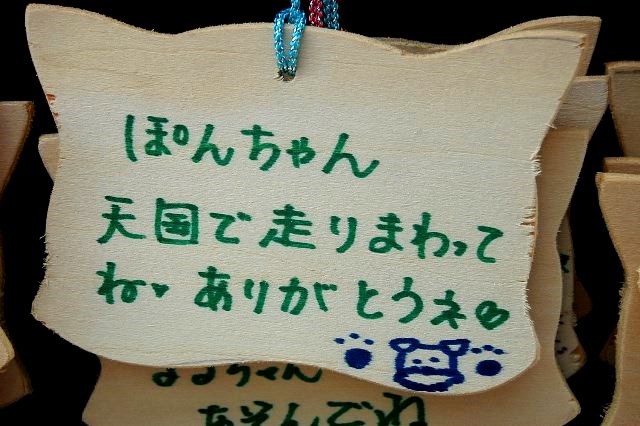 ぽんちゃん
天国で走りまわって
ね♥ ありがとうネ♡
まるちゃん
あそんでね